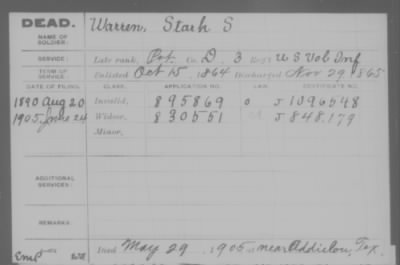 DEAD.
Warren, Stark S
NAME OF SOLDIER:
SERVICE:
Late rank, Pvt. Co. D, 3 Reg't U S Vol Inf
TERM OF SERVICE:
Enlisted Oct 15, 1864 Discharged Nov 29, 1865
DATE OF FILING. CLASS. APPLICATION NO. LAW. CERTIFICATE NO.
1890 Aug 20 Invalid, 895869 0 J 1096548
1905 June 24 Widow, 830551 J 848.179
Minor,
ADDITIONAL SERVICES:
REMARKS:
Died May 29, 1905 at near Addielou, Tex.